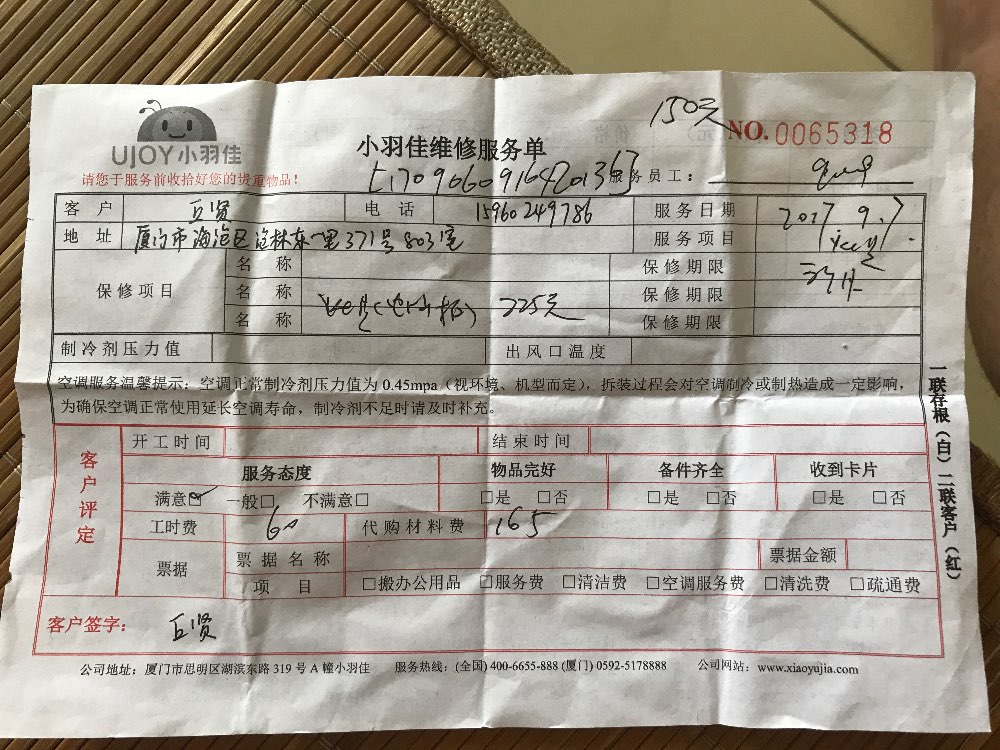 150元
NO. 0065318
UJOY小羽佳
小羽佳维修服务单
请您于服务前收拾好您的贵重物品!
服务员工:
客户 丘贤 电话 15960249786 服务日期 2017 9.7
地址 厦门市海沧区 371号803室 服务项目
名称 保修期限
保修项目 名称 保修期限
名称 225元 保修期限
制冷剂压力值 出风口温度
空调服务温馨提示:空调正常制冷剂压力值为0.45mpa(视环境、机型而定),拆装过程会对空调制冷或制热造成一定影响,
为确保空调正常使用延长空调寿命,制冷剂不足时请及时补充。
一联存根(白)二联客户(红)
客户评定
开工时间 结束时间
服务态度 物品完好 备件齐全 收到卡片
满意☑ 一般□ 不满意□ □是 □否 □是 □否 □是 □否
工时费 60 代购材料费 165
票据 票据名称 票据金额
项目 □搬办公用品 □服务费 □清洁费 □空调服务费 □清洗费 □疏通费
客户签字: 丘贤
公司地址:厦门市思明区湖滨东路319号A幢小羽佳 服务热线:(全国)400-6655-888(厦门)0592-5178888 公司网站:www.xiaoyujia.com